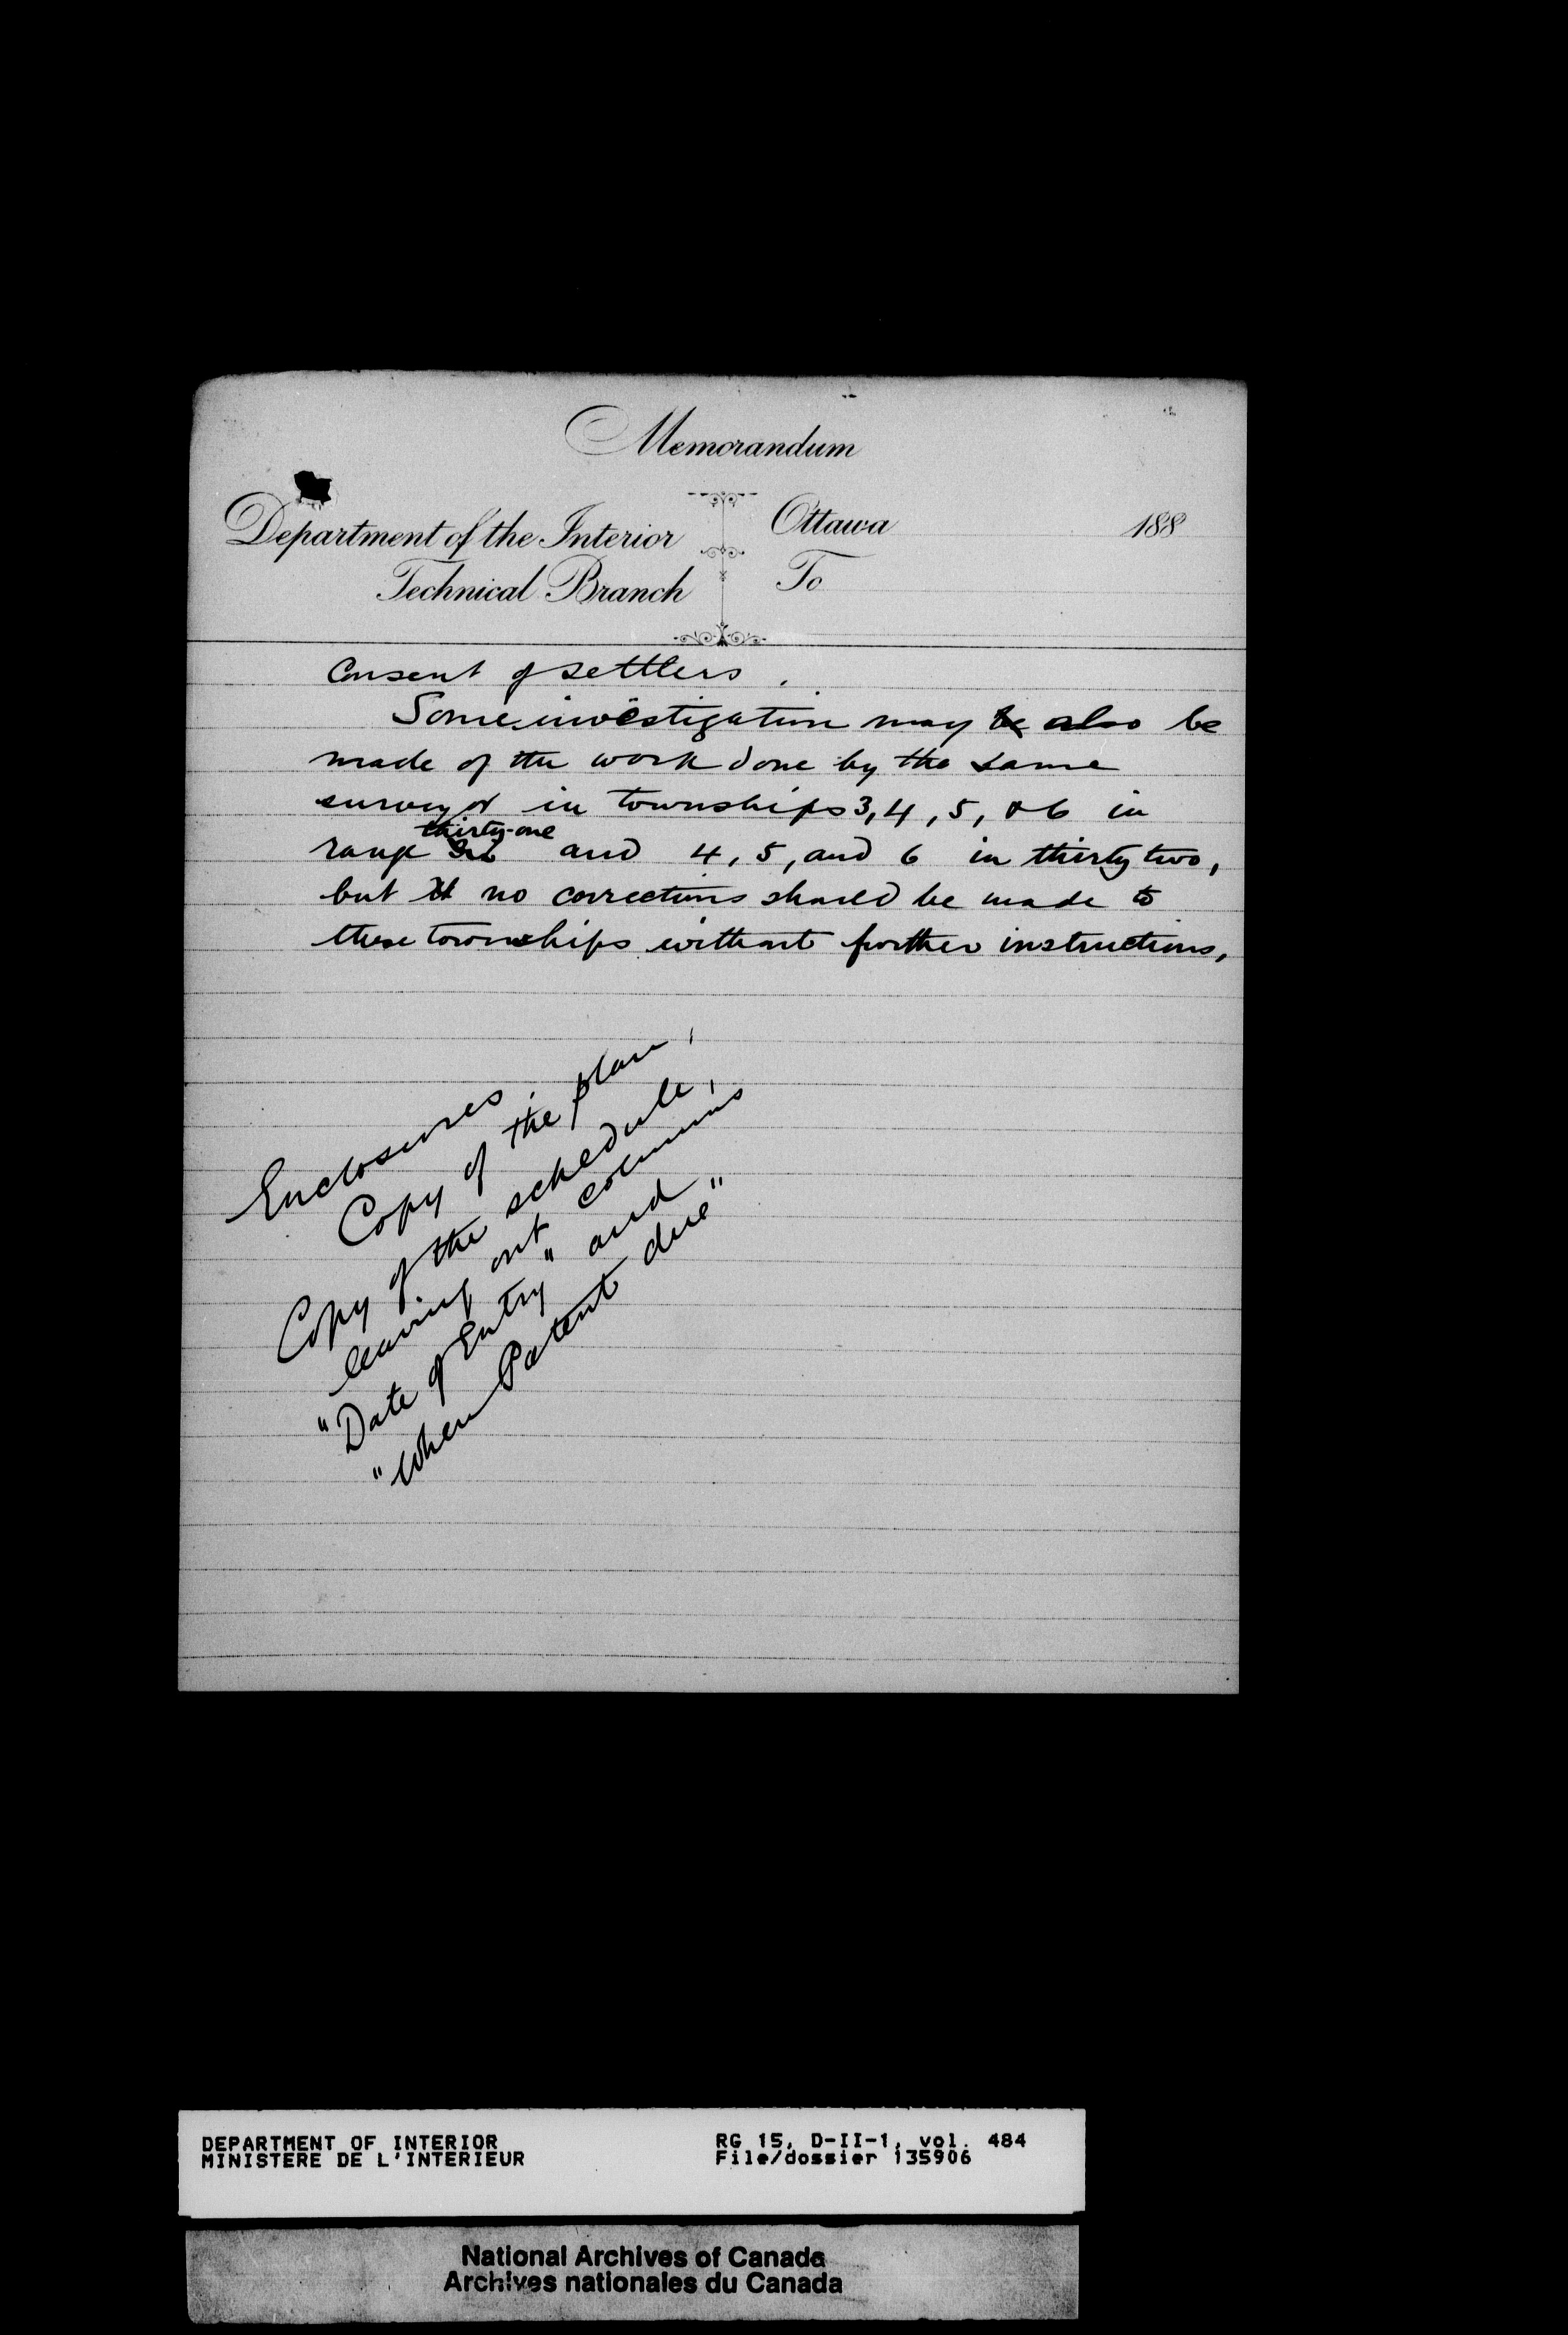 Memorandum
Department of the Interior
Technical Branch
Ottawa 188
To
Consent of settlers.
Some investigation may be also be
made of the work done by the same
surveyor in townships 3, 4, 5, & 6 in
thirty-one
range and 4, 5, and 6 in thirty two,
but no corrections should be made to
these townships without further instructions.
Enclosures:
Copy of the plan,
Copy of the schedule,
leaving out columns
"Date of Entry" and
"When Patent due"
DEPARTMENT OF INTERIOR
MINISTERE DE L'INTERIEUR
RG 15, D-II-1, vol. 484
File/dossier 135906
National Archives of Canada
Archives nationales du Canada